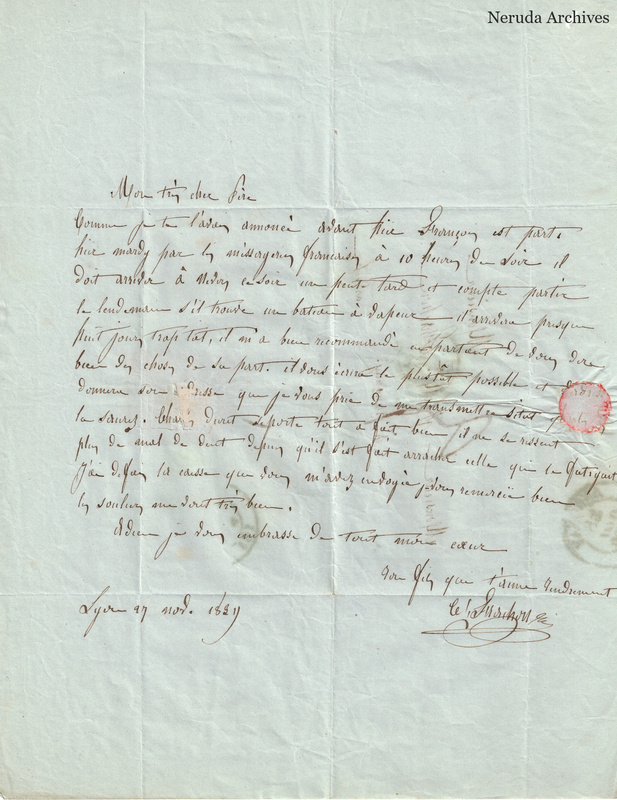 Neruda Archives
Mon très cher Père
Comme je te l'avais annoncé avant hier François est parti
hier mardy par les messageries françaises à 10 heures du soir il
doit arriver à ce soir un peut tard et compte partir
le lendemain s'il trouve un bateau à vapeur il arrivera presque
huit jours trop tôt, il m'a bien recommandé en partant de vous dire
bien des choses de sa part. il vous écrira le plustôt possible et
donnera son adresse que je vous prie de me transmettre sitot
la saurez. se porte tout à fait bien il ne se ressent
plus de mal de dent depuis qu'il s'est fait arracher celle qui le fatiguait
J'ai la caisse que vous m'avez envoyée je vous remercie bien
les souliers me vont très bien.
Adieu je vous embrasse de tout mon cœur
ton fils qui t'aime tendrement
Lyon 27 nov. 1839